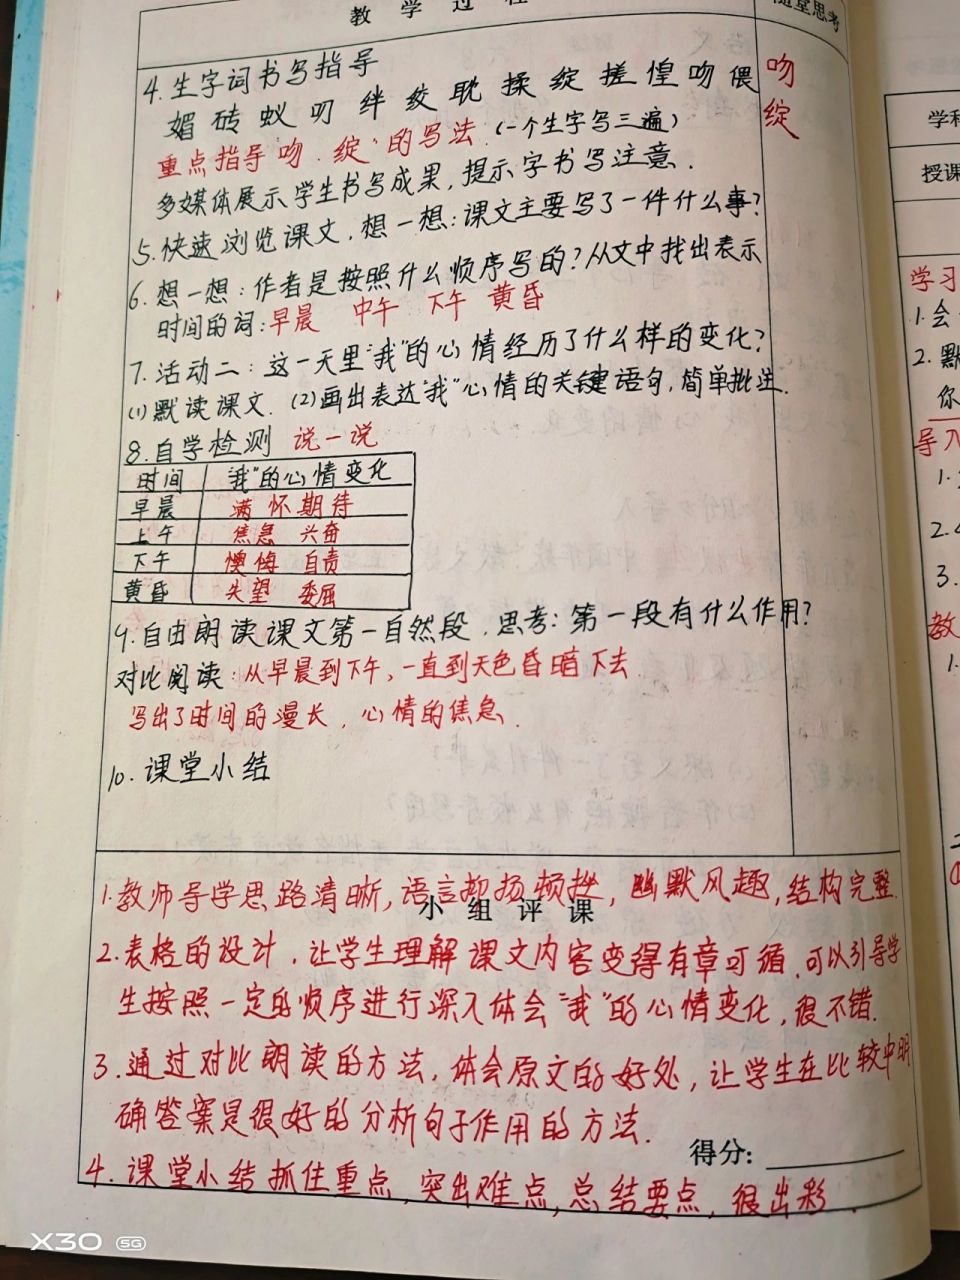 教 学 过 程
随堂思考
4. 生字词书写指导
媚 砖 蚁 叨 绊 绞 耽 揉 绽 搓 惶 吻 偎
吻
绽
重点指导 吻、绽 的写法 (一个生字写三遍)
多媒体展示学生书写成果, 提示字书写注意.
5. 快速浏览课文, 想一想: 课文主要写了一件什么事?
6. 想一想: 作者是按照什么顺序写的? 从文中找出表示
时间的词: 早晨 中午 下午 黄昏
7. 活动二: 这一天里"我"的心情经历了什么样的变化?
(1) 默读课文. (2) 画出表达"我"心情的关键语句, 简单批注.
8. 自学检测 说一说
时间 "我"的心情变化
早晨 满怀期待
上午 焦急 兴奋
下午 懊悔 自责
黄昏 失望 委屈
9. 自由朗读课文第一自然段, 思考: 第一段有什么作用?
对比阅读: 从早晨到下午, 一直到天色昏暗下去
写出了时间的漫长, 心情的焦急.
10. 课堂小结
1. 教师导学思路清晰, 语言抑扬顿挫, 幽默风趣, 结构完整.
小 组 评 课
2. 表格的设计, 让学生理解课文内容变得有章可循, 可以引导学
生按照一定的顺序进行深入体会"我"的心情变化, 很不错.
3. 通过对比朗读的方法, 体会原文的好处, 让学生在比较中明
确答案是很好的分析句子作用的方法.
得分:
4. 课堂小结抓住重点, 突出难点, 总结要点, 很出彩.
学科
授课
学习
1. 会
2. 默
你
导入
1.
2.
3.
教
1.
X30 5G